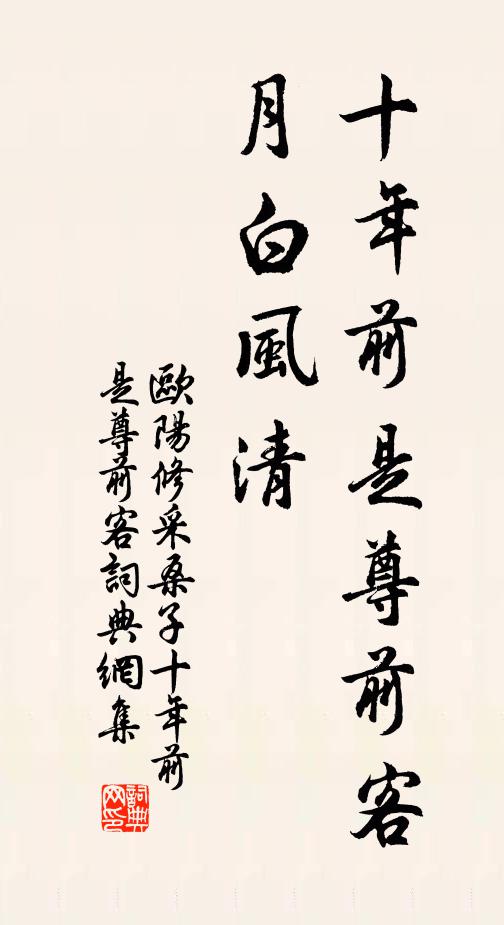 十年前是尊前客
月白風清
歐陽修采桑子十年前
是尊前客詞典網集
詞典
网印